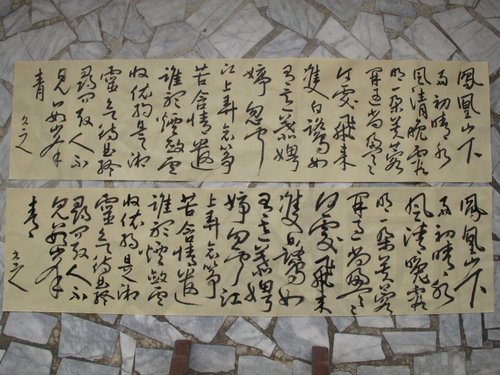 鳳凰山下
雨初晴水
風清晚霞
明一朵芙蕖
開過尚盈盈
何處飛來
雙白鷺如
有意慕娉
婷忽聞
江上弄哀箏
苦含情遣
誰聽煙斂雲
收依約是湘
靈欲待曲終
尋問取人不
見數峰
青
鳳凰山下
雨初晴水
風清晚霞
明一朵芙蕖
開過尚盈盈
何處飛來
雙白鷺如
有意慕娉
婷忽聞江
上弄哀箏
苦含情遣
誰聽煙斂雲
收依約是湘
靈欲待曲終
尋問取人不
見數峰
青